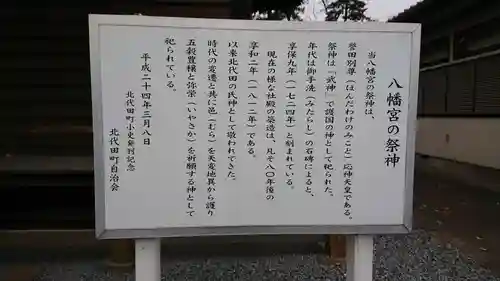 八幡宮の祭神
当八幡宮の祭神は、
誉田別尊（ほんだわけのみこと）応神天皇である。
祭神は『武神』で護国の神として祀られた。
年代は御手洗（みたらし）の石碑によると、
享保九年（一七二四年）と刻まれている。
現在の様な社殿の築造は、凡そ八〇年後の
享和二年（一八一二年）である。
以来北代田の氏神として敬われてきた。
時代の変遷と共に邑（むら）を天変地異から護り
五穀豊穣と弥栄（いやさか）を祈願する神として
祀られている。
平成二十四年三月八日
北代田町小史発刊記念
北代田町自治会